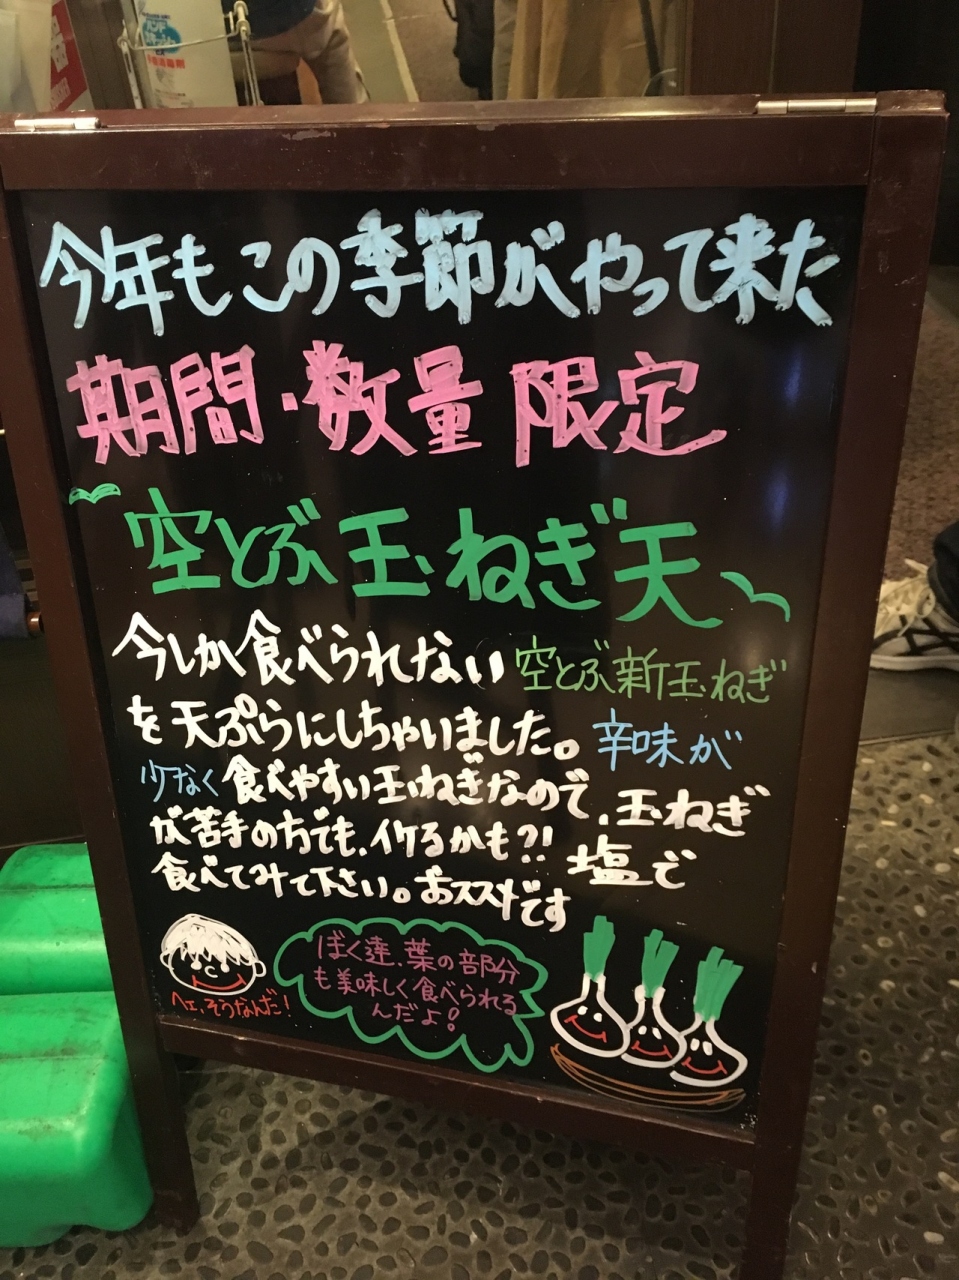 今年もこの季節がやって来た
期間・数量限定
空とぶ玉ねぎ天
今しか食べられない空とぶ新玉ねぎ
を天ぷらにしちゃいました。辛味が
少なく食べやすい玉ねぎなので、玉ねぎ
が苦手の方でも、イケるかも?!塩で
食べてみて下さい。おススメです
ぼく達、葉の部分
も美味しく食べられる
んだよ!
ヘェ、そうなんだ!